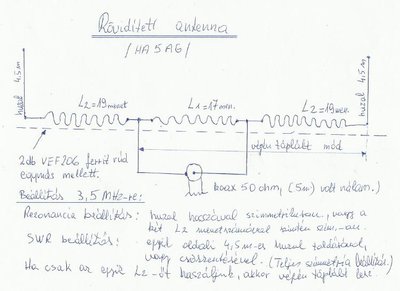 Rövidített antenna
/HA5AG/
huzal 4,5m
huzal 4,5m
L2=19menet
L1=17men.
L2=19men.
végén táplált mód
2db VEF206 ferrit rúd
egymás mellett.
koax 50 ohm, (5m) volt nálam.)
Beállítás 3,5 MHz-re:
Rezonancia beállítás: huzal hosszával szimmetrikusan, vagy a
két L2 menetszámával szintén szim.-an.
SWR beállítás: egyik oldali 4,5m-es huzal toldásával,
vagy csökkentésével. (Teljes szimmetria beállítás.)
Ha csak az egyik L2-őt használjuk, akkor végén táplált lesz.